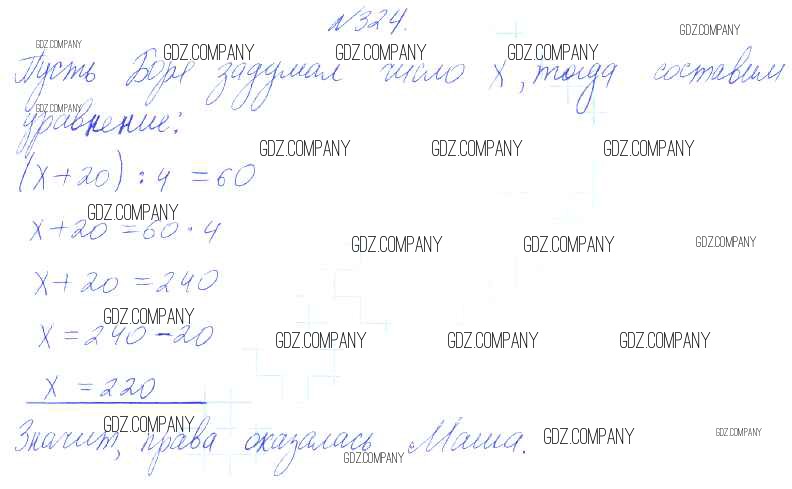 №324.
Пусть Боря задумал число x, тогда составим
уравнение:
(x+20) : 4 = 60
x+20 = 60 · 4
x+20 = 240
x = 240 - 20
x = 220
Значит, права оказалась Маша.
GDZ.COMPANY GDZ.COMPANY GDZ.COMPANY GDZ.COMPANY GDZ.COMPANY
GDZ.COMPANY GDZ.COMPANY GDZ.COMPANY GDZ.COMPANY
GDZ.COMPANY GDZ.COMPANY GDZ.COMPANY GDZ.COMPANY
GDZ.COMPANY GDZ.COMPANY GDZ.COMPANY GDZ.COMPANY
GDZ.COMPANY GDZ.COMPANY GDZ.COMPANY GDZ.COMPANY